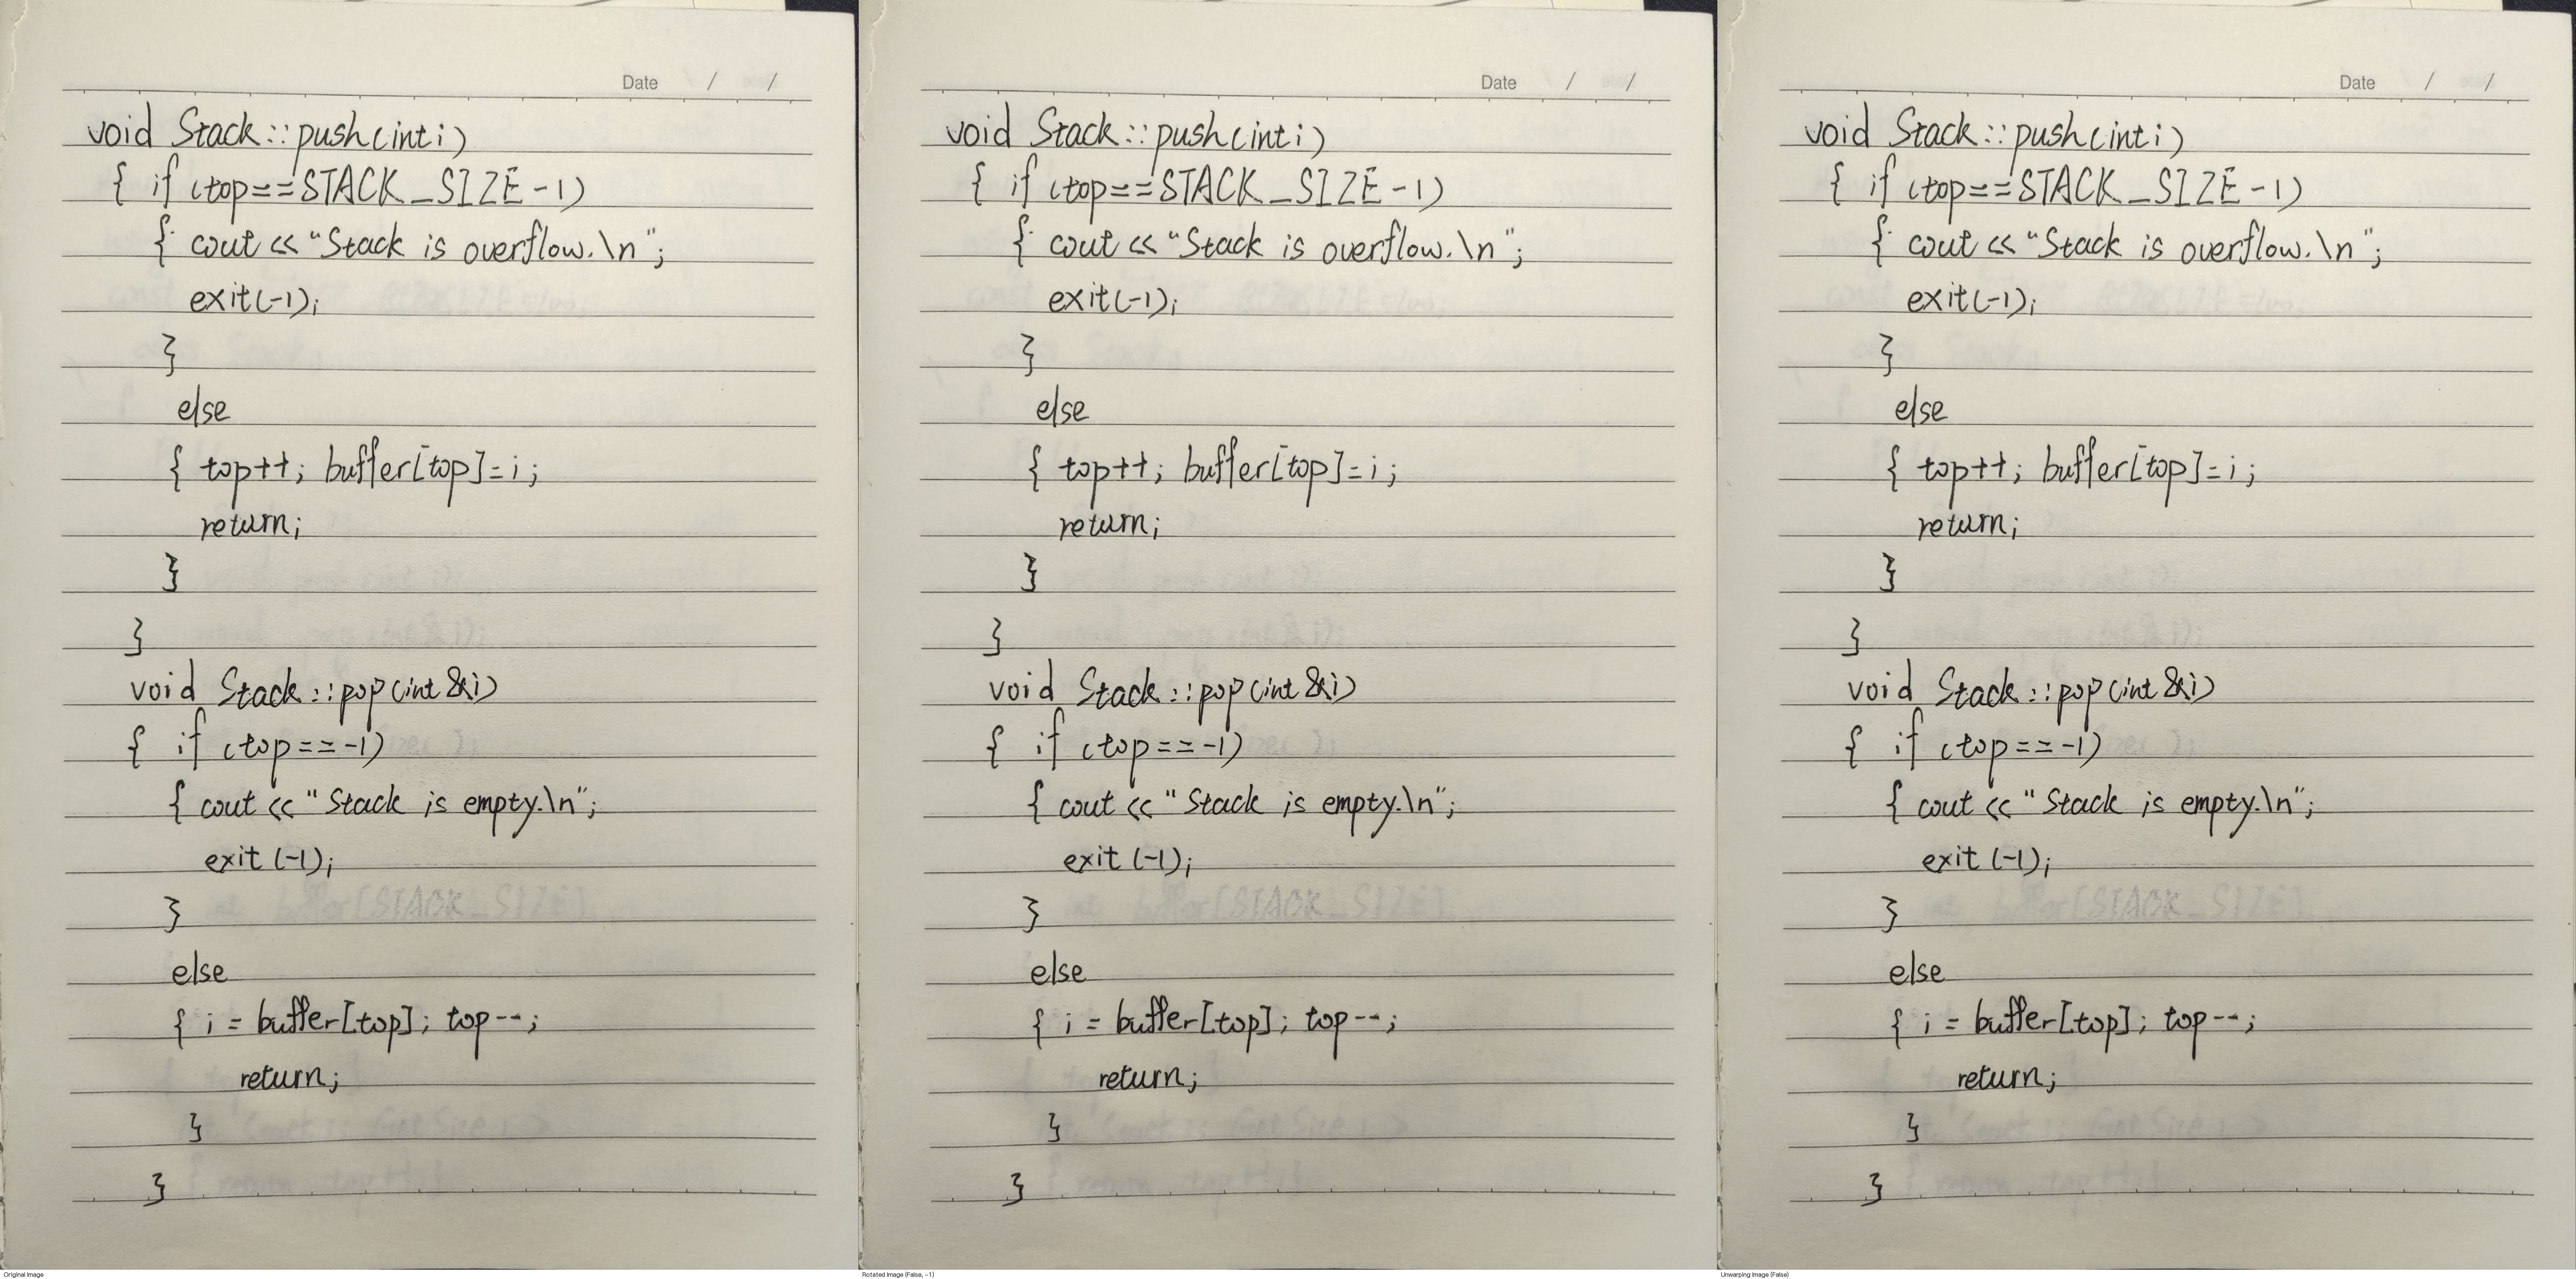 Date / /
void Stack::push(int i)
{ if (top==STACK_SIZE-1)
{ cout << "Stack is overflow.\n";
exit(-1);
}
else
{ top++; buffer[top]=i;
return;
}
}
void Stack::pop(int &i)
{ if (top==-1)
{ cout << "Stack is empty.\n";
exit (-1);
}
else
{ i = buffer[top]; top--;
return;
}
}
Original Image
Date / /
void Stack::push(int i)
{ if (top==STACK_SIZE-1)
{ cout << "Stack is overflow.\n";
exit(-1);
}
else
{ top++; buffer[top]=i;
return;
}
}
void Stack::pop(int &i)
{ if (top==-1)
{ cout << "Stack is empty.\n";
exit (-1);
}
else
{ i = buffer[top]; top--;
return;
}
}
Rotated Image (False, -1)
Date / /
void Stack::push(int i)
{ if (top==STACK_SIZE-1)
{ cout << "Stack is overflow.\n";
exit(-1);
}
else
{ top++; buffer[top]=i;
return;
}
}
void Stack::pop(int &i)
{ if (top==-1)
{ cout << "Stack is empty.\n";
exit (-1);
}
else
{ i = buffer[top]; top--;
return;
}
}
Unwarping Image (False)